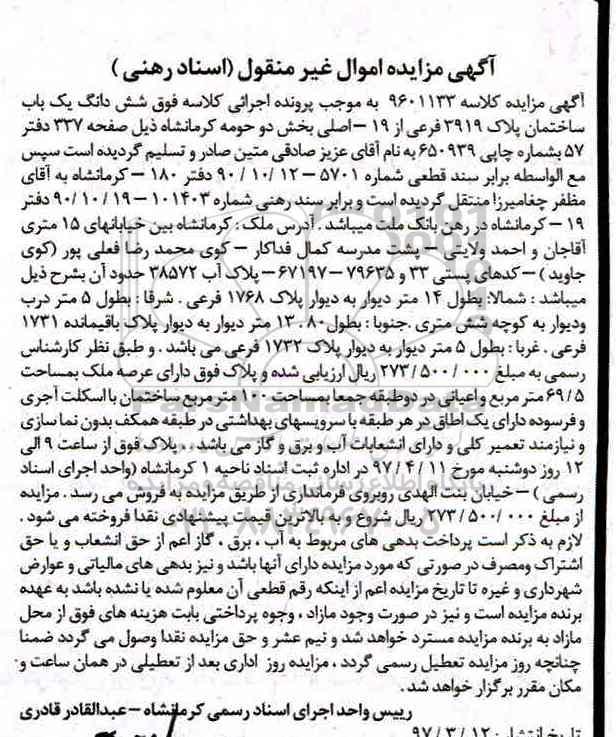 آگهی مزایده اموال غیر منقول (اسناد رهنی)
آگهی مزایده کلاسه ۹۶۰۱۱۳۳ به موجب پرونده اجرائی کلاسه فوق شش دانگ یک باب
ساختمان پلاک ۳۹۱۹ فرعی از ۱۹ – اصلی بخش دو حومه کرمانشاه ذیل صفحه ۳۳۷ دفتر
۵۷ بشماره چاپی ۶۵۰۹۳۹ به نام آقای عزیز صادقی متین صادر و تسلیم گردیده است سپس
مع الواسطه برابر سند قطعی شماره ۵۷۰۱ – ۱۲ /۱۰ /۹۰ دفتر ۱۸۰ – کرمانشاه به آقای
مظفر چغامیرزا منتقل گردیده است و برابر سند رهنی شماره ۱۰۱۴۰۳ – ۱۹ /۱۰ /۹۰ دفتر
۱۹ – کرمانشاه در رهن بانک ملت میباشد . آدرس ملک : کرمانشاه بین خیابانهای ۱۵ متری
آقاجان و احمد ولایتی – پشت مدرسه کمال فداکار – کوی محمد رضا فعلی پور (کوی
جاوید) – کدهای پستی ۳۳ و ۷۹۶۳۵ – ۶۷۱۹۷ – پلاک آب ۳۸۵۷۲ حدود آن بشرح ذیل
میباشد : شمالا: بطول ۱۴ متر دیوار به دیوار پلاک ۱۷۶۸ فرعی . شرقا : بطول ۵ متر درب
ودیوار به کوچه شش متری .جنوبا : بطول ۸۰ . ۱۳ متر دیوار به دیوار پلاک باقیمانده ۱۷۳۱
فرعی . غربا : بطول ۵ متر دیوار به دیوار پلاک ۱۷۳۲ فرعی می باشد . و طبق نظر کارشناس
رسمی به مبلغ ۰۰۰/ ۵۰۰/ ۲۷۳ ریال ارزیابی شده و پلاک فوق دارای عرصه ملک بمساحت
۶۹/۵ متر مربع و اعیانی در دوطبقه جمعا بمساحت ۱۰۰ متر مربع ساختمان با اسکلت آجری
و فرسوده دارای یک اطاق در هر طبقه با سرویسهای بهداشتی در طبقه همکف بدون نما سازی
و نیازمند تعمیر کلی و دارای انشعابات آب و برق و گاز می باشد ، . پلاک فوق از ساعت ۹ الی
۱۲ روز دوشنبه مورخ ۱۱ /۴ /۹۷ در اداره ثبت اسناد ناحیه ۱ کرمانشاه (واحد اجرای اسناد
رسمی ) – خیابان بنت الهدی روبروی فرمانداری از طریق مزایده به فروش می رسد . مزایده
از مبلغ ۰۰۰/ ۵۰۰/ ۲۷۳ ریال شروع و به بالاترین قیمت پیشنهادی نقدا فروخته می شود .
لازم به ذکر است پرداخت بدهی های مربوط به آب ، برق ، گاز اعم از حق انشعاب و یا حق
اشتراک ومصرف در صورتی که مورد مزایده دارای آنها باشد و نیز بدهی های مالیاتی و عوارض
شهرداری و غیره تا تاریخ مزایده اعم از اینکه رقم قطعی آن معلوم شده یا نشده باشد به عهده
برنده مزایده است و نیز در صورت وجود مازاد ، وجوه پرداختی بابت هزینه های فوق از محل
مازاد به برنده مزایده مسترد خواهد شد و نیم عشر و حق مزایده نقدا وصول می گردد ضمنا
چنانچه روز مزایده تعطیل رسمی گردد ، مزایده روز اداری بعد از تعطیلی در همان ساعت و
مکان مقرر برگزار خواهد شد .
رییس واحد اجرای اسناد رسمی کرمانشاه – عبدالقادر قادری
تاریخ انتشار : ۱۲ /۳ /۹۷
ParsNamadData
پایگاه اطلاع رسانی مناقصه و مزایده